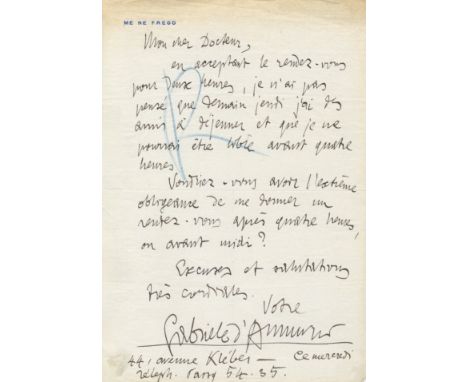 ME NE FREGO
Mon cher Docteur,
en acceptant le rendez-vous
pour deux heures, je n'ai pas
pensé que demain jeudi j'ai des
amis à déjeuner et que je ne
pourrai être libre avant quatre
heures.
Voudriez-vous avoir l'extrême
obligeance de me donner un
rendez-vous après quatre heures,
ou avant midi ?
Excuses et salutations
très cordiales.
Votre
Gabriele d'Annunzio
44, avenue Kléber — Ce mercredi
Téleph. Passy 54-35.